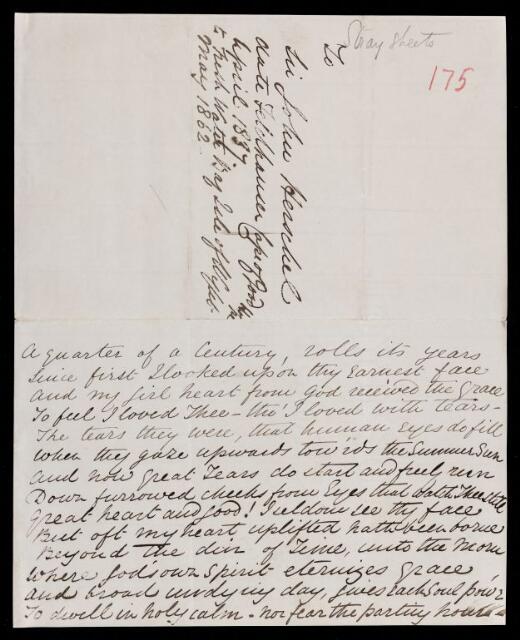 Stray sheets
175
To
Sir John Herschel
date Feldhausen Cape of Good
April 1837
to Fresh Water Bay Isle of Wight
May 1862.
A quarter of a Century, rolls its years
Since first I looked upon thy earnest face
and my girl heart from God received the Grace
To feel I loved Thee – tho' I loved with tears –
The tears they were, that human Eyes do fill
when they gaze upwards tow'rds the Summer Sun
and now great Tears do start and feel run
Down furrowed cheeks from Eyes that watch Thee still
Great heart and good! I seldom see thy face
But oft my heart, uplifted hath been borne
Beyond the din of Time, unto the Morn
where God's own Spirit eternizes Grace
and broad undying day, gives each Soul pow'r
To dwell in holy calm – nor fear the parting hour –